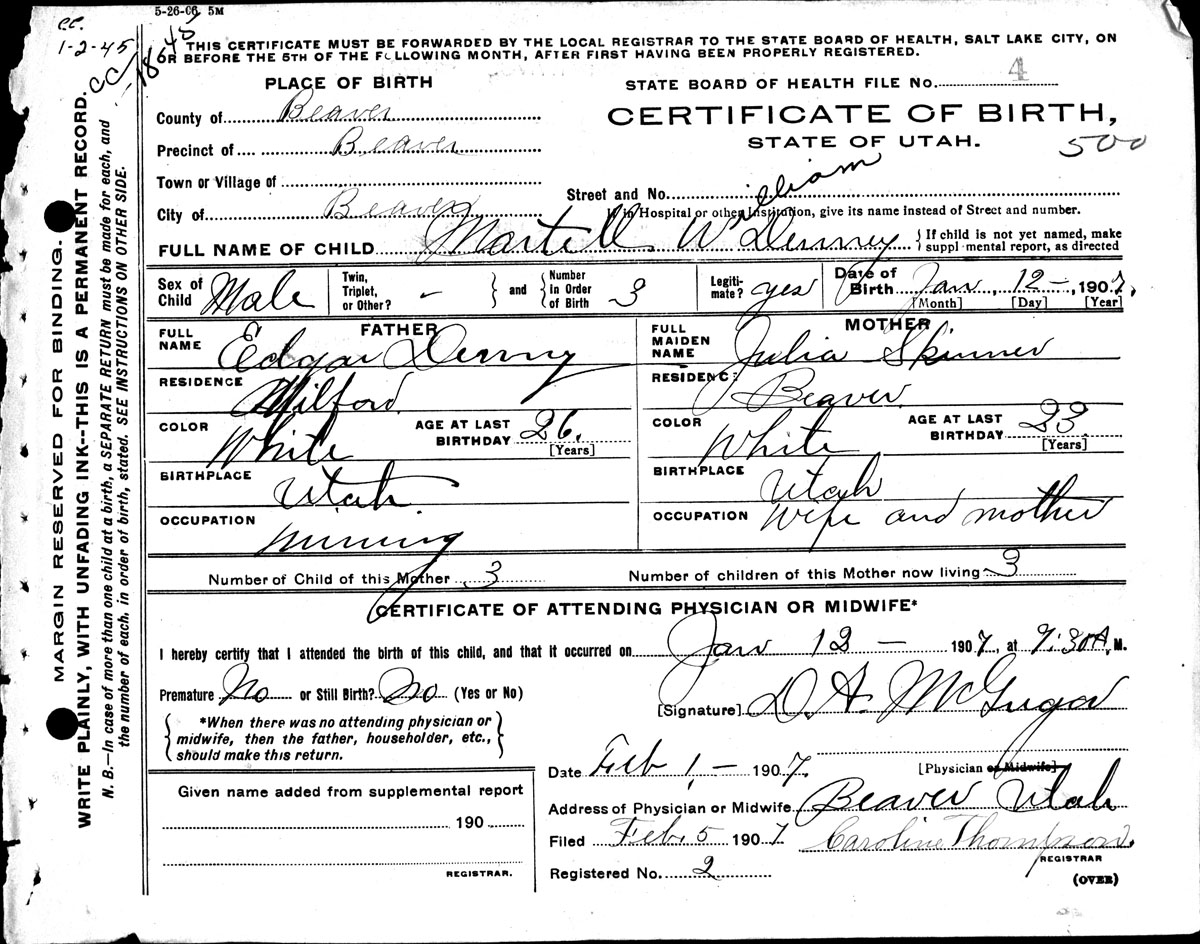 5-26-06 5M
CC.
1-2-45
CC
THIS CERTIFICATE MUST BE FORWARDED BY THE LOCAL REGISTRAR TO THE STATE BOARD OF HEALTH, SALT LAKE CITY, ON
OR BEFORE THE 5TH OF THE FOLLOWING MONTH, AFTER FIRST HAVING BEEN PROPERLY REGISTERED.
MARGIN RESERVED FOR BINDING.
WRITE PLAINLY, WITH UNFADING INK--THIS IS A PERMANENT RECORD.
N. B.—In case of more than one child at a birth, a SEPARATE RETURN must be made for each, and
the number of each, in order of birth, stated. SEE INSTRUCTIONS ON OTHER SIDE.
PLACE OF BIRTH
STATE BOARD OF HEALTH FILE No. 4
County of Beaver
CERTIFICATE OF BIRTH,
Precinct of Beaver
STATE OF UTAH.
500
Town or Village of
Street and No.
City of Beaver
If in Hospital or other Institution, give its name instead of Street and number.
William
FULL NAME OF CHILD Martell W Denney
{ If child is not yet named, make
supplemental report, as directed
Sex of Child Male
Twin, Triplet, or Other? -
} and {
Number In Order of Birth 3
Legiti-mate? yes
Date of Birth Jan 12 - 1907,
[Month] [Day] [Year]
FATHER
FULL NAME Edgar Denny
RESIDENCE Milford
COLOR White
AGE AT LAST BIRTHDAY 26.
[Years]
BIRTHPLACE Utah
OCCUPATION Mining
MOTHER
FULL MAIDEN NAME Julia Skinner
RESIDENCE Beaver
COLOR White
AGE AT LAST BIRTHDAY 23
[Years]
BIRTHPLACE Utah
OCCUPATION Wife and mother
Number of Child of this Mother 3
Number of children of this Mother now living 3
CERTIFICATE OF ATTENDING PHYSICIAN OR MIDWIFE*
I hereby certify that I attended the birth of this child, and that it occurred on Jan 12 - 1907, at 9:30 A. M.
Premature No or Still Birth? No (Yes or No)
[Signature] D. A. McGregor
{ *When there was no attending physician or
midwife, then the father, householder, etc.,
should make this return. }
[Physician or Midwife]
Date Feb 1, - 1907.
Address of Physician or Midwife Beaver Utah
Given name added from supplemental report
190
REGISTRAR.
Filed Feb. 5 1907 Caroline Thompson.
REGISTRAR
Registered No. 2
(OVER)